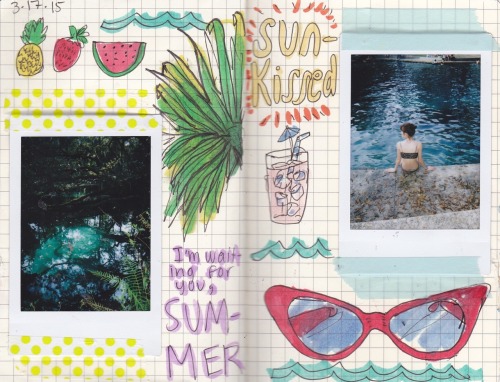 3.17.15
SUN-
Kissed
I'm wait
ing for
you,
SUM-
MER